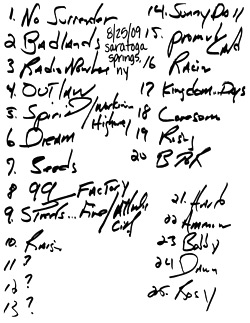 1. No Surrender
2 Badlands
3 Radio Nowhere
4. Outlaw
5. Spirit/Workin Highway
6 Dream
7. Seeds
8 99 Factory
9. Streets... Fire/Atlantic City
10. Raise
11 ?
12 ?
13 ?
8/25/09
saratoga
springs,
ny
14. Sunny Day
15. promised Land
16 Racin
17 Kingdom..Days
18 Lonesom
19 Rising
20 BTR
21. Hard
22 American
23 Bobby
24 Dawn
25. Rosy